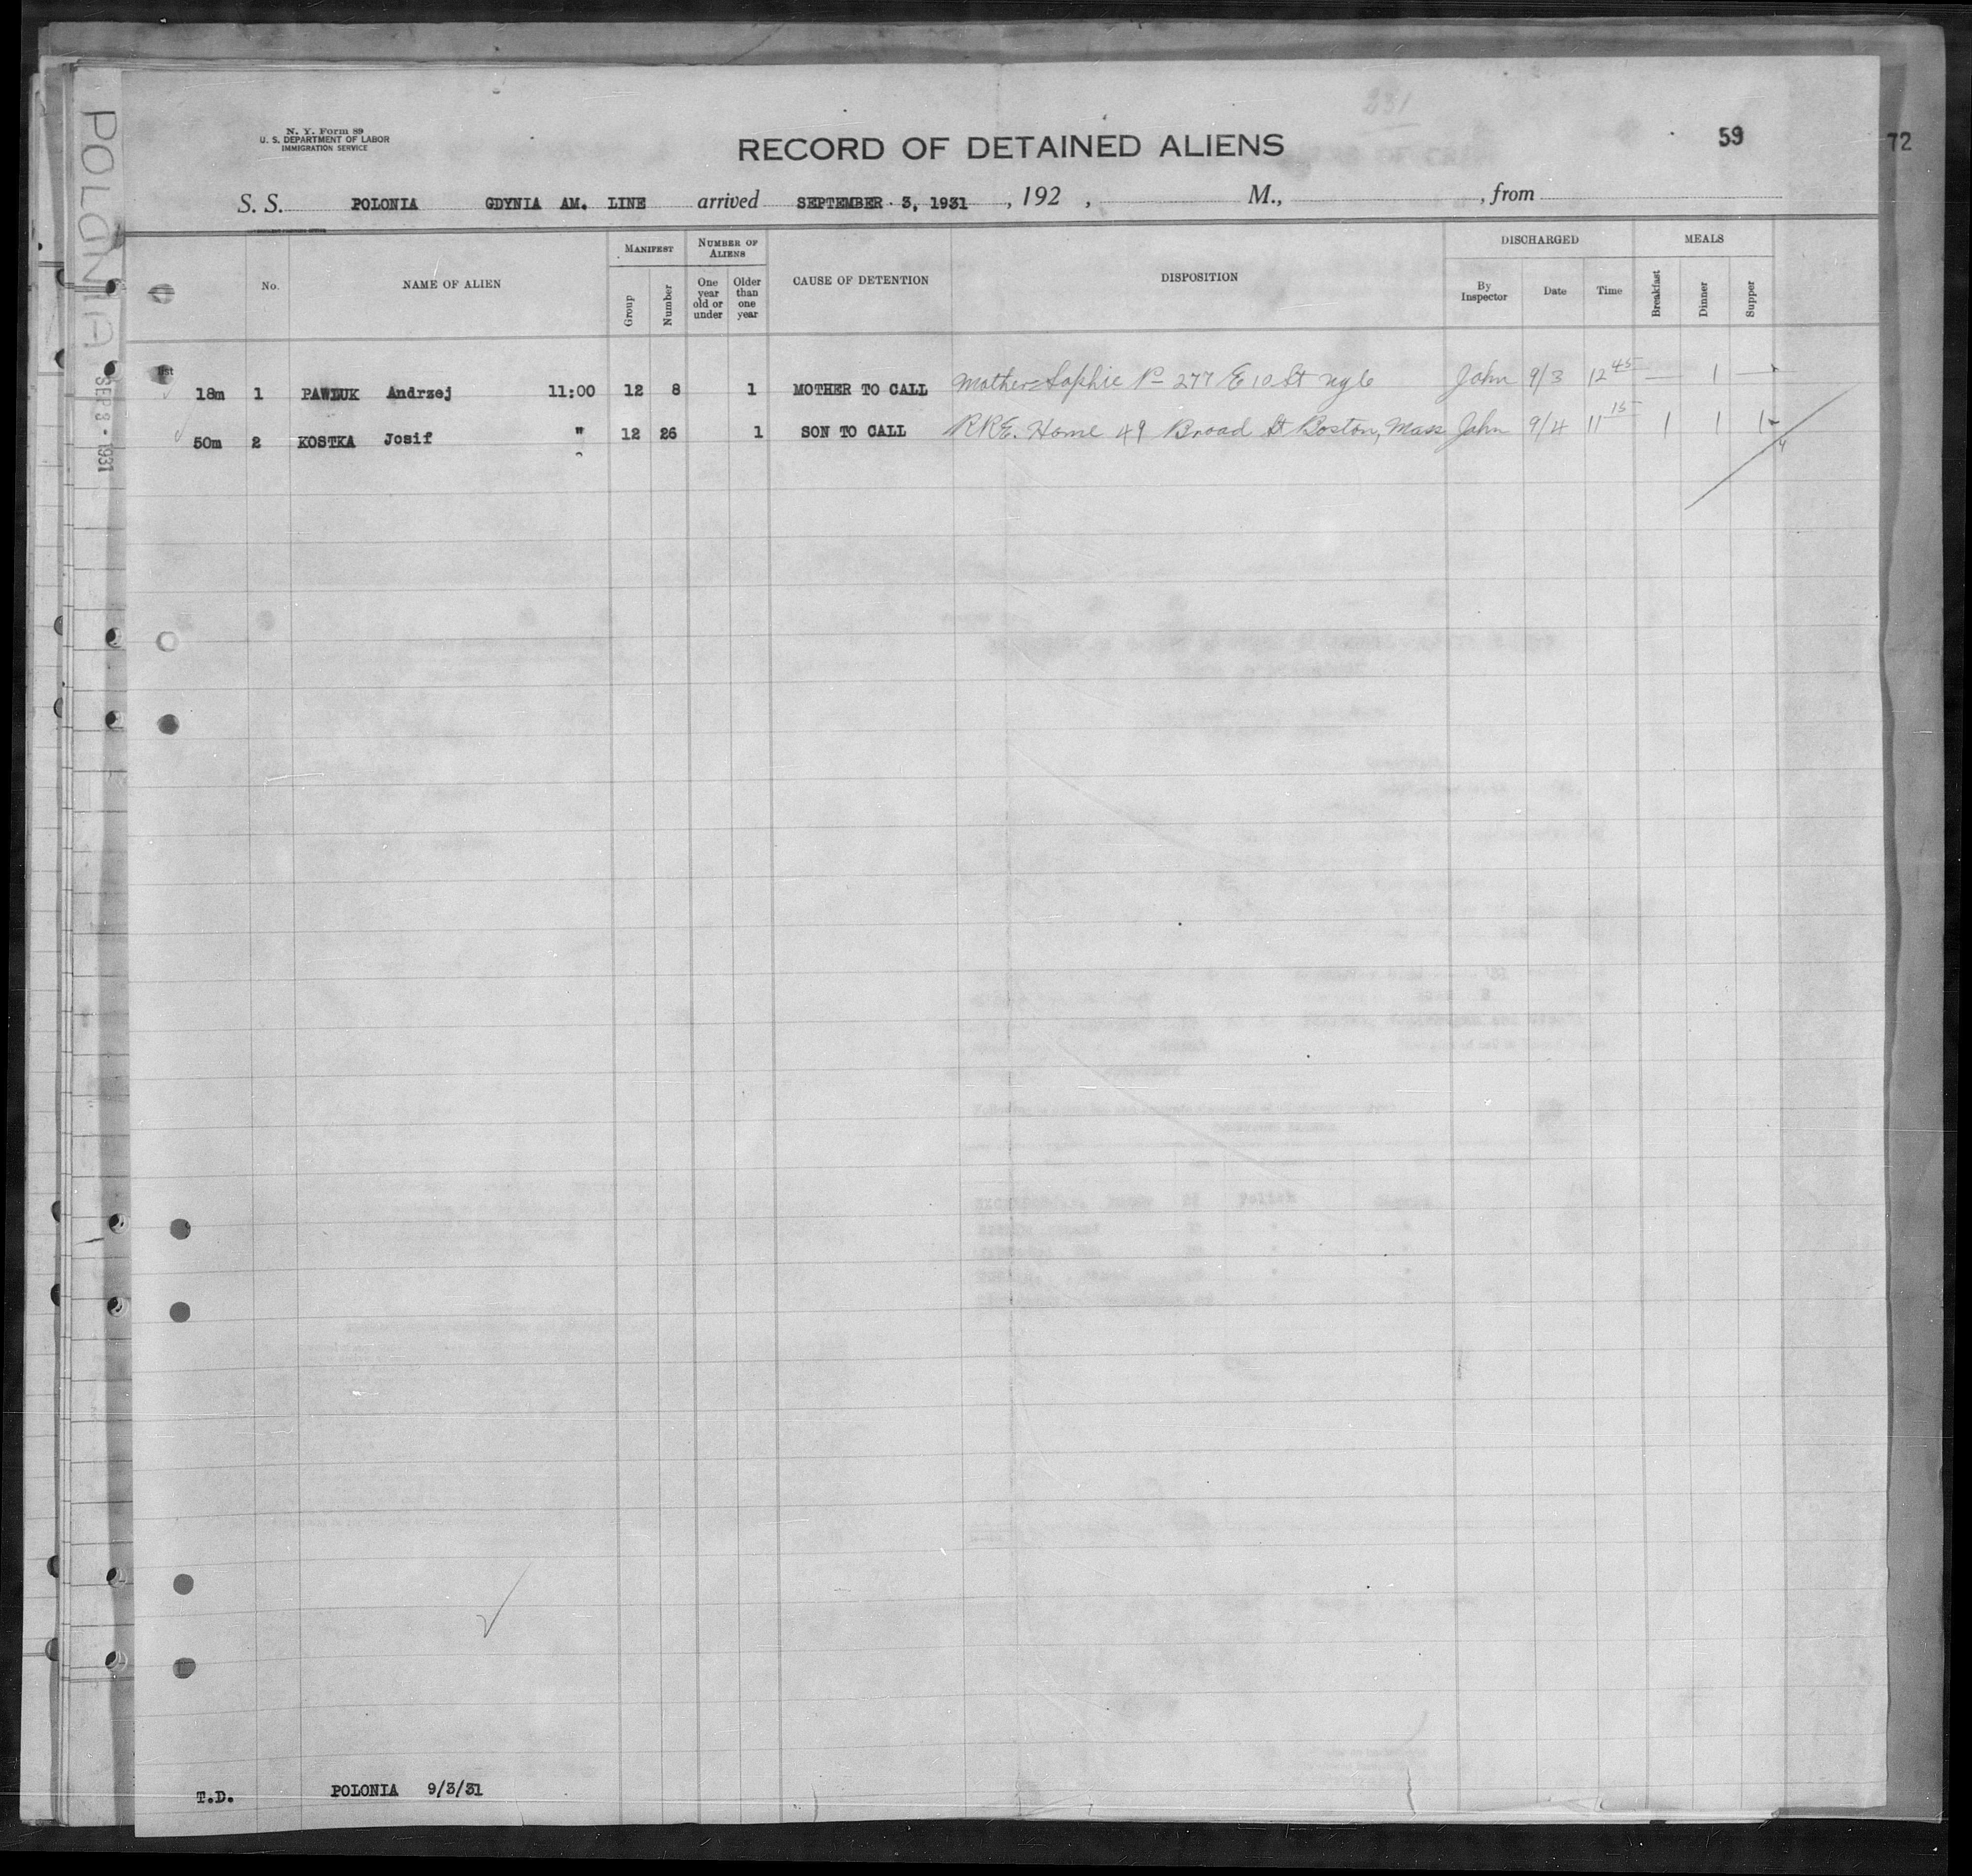 POLONIA
SEP 3 - 1931
231
N. Y. Form 89
U. S. DEPARTMENT OF LABOR
IMMIGRATION SERVICE
RECORD OF DETAINED ALIENS
59
72
S. S. POLONIA GDYNIA AM. LINE arrived SEPTEMBER 3, 1931, 192 , M., , from
No.
NAME OF ALIEN
MANIFEST
Group
Number
NUMBER OF ALIENS
One year old or under
Older than one year
CAUSE OF DETENTION
DISPOSITION
DISCHARGED
By Inspector
Date
Time
MEALS
Breakfast
Dinner
Supper
18m 1 PAWLUK Andrzej 11:00 12 8 1 MOTHER TO CALL Mother Sophie P- 277 E 10 St nyc John 9/3 12 45 — 1 —
50m 2 KOSTKA Josif " 12 26 1 SON TO CALL RRE. Home 49 Broad St Boston, Mass John 9/4 11 15 1 1 1
4
T.D. POLONIA 9/3/31